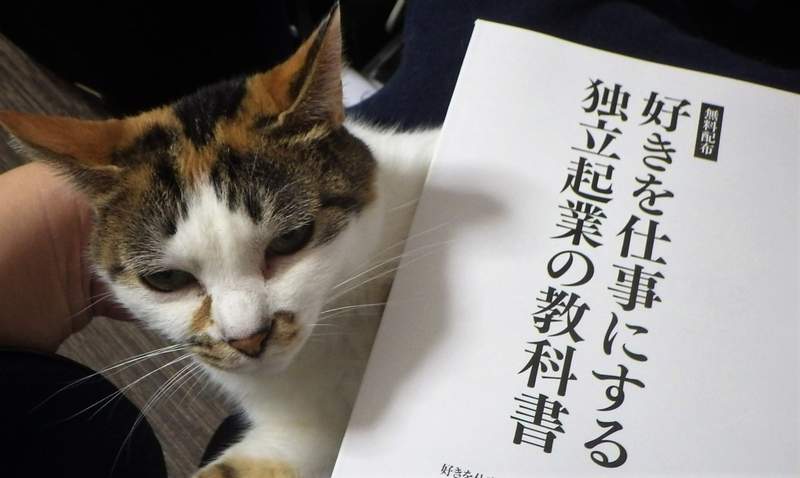 無料配布
好きを仕事にする
独立起業の教科書
好きを仕